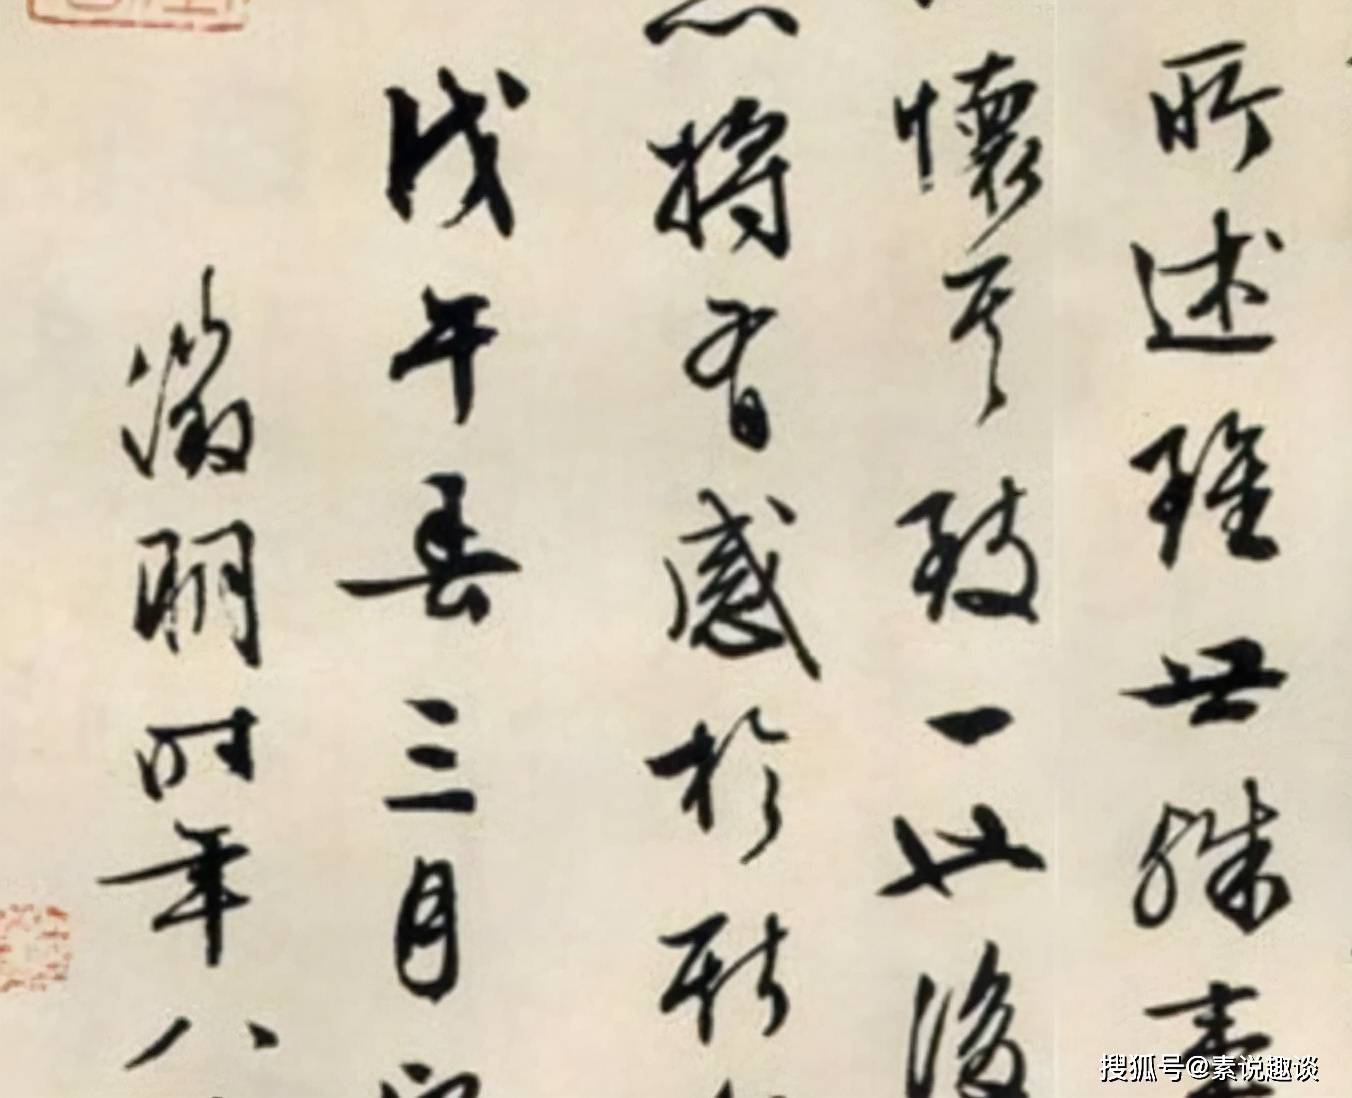 所述雖世殊事
懷其致一也後
將有感於斯
戊午春三月
徵明時年八
搜狐号@素说趣谈